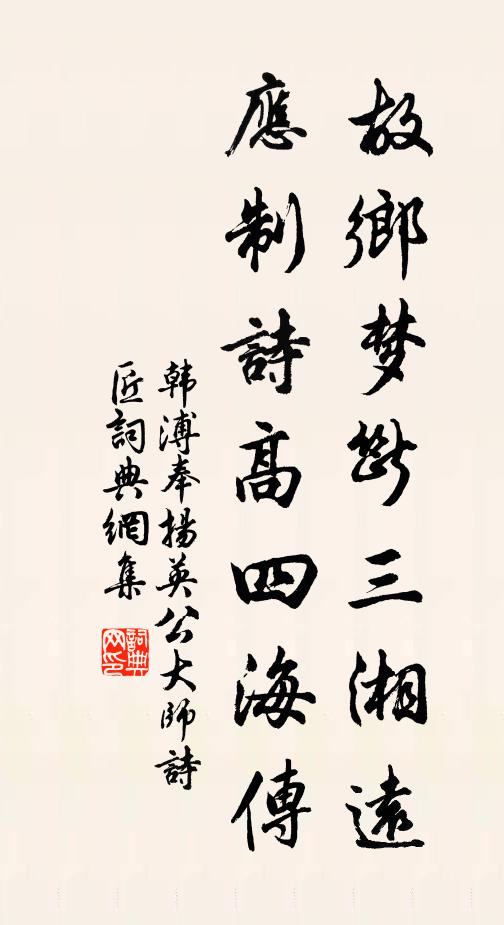 故鄉梦斷三湘遠
應制詩高四海傳
韩溥奉揚英公大師詩
匠詞典網集
詞典网印